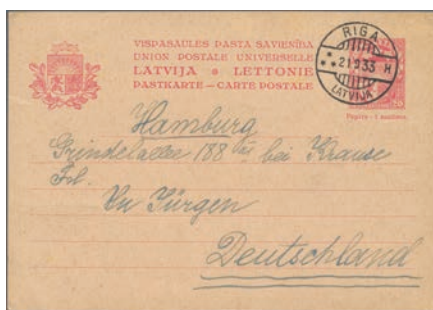 VISPASAULES PASTA SAVIENĪBA
UNION POSTALE UNIVERSELLE
LATVIJA * LETTONIE
PASTKARTE — CARTE POSTALE
RIGA
21 9 33 H
LATVIJA
Hamburg
Grindelallee 188 bei Krause
Frl.
Jürgen
Deutschland